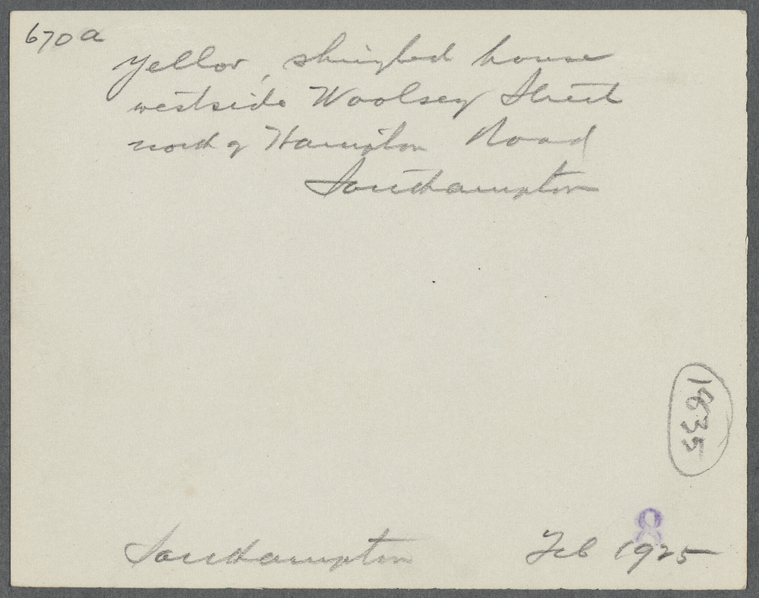 670a
Yellow, shingled house
westside Woolsey Street
north of Hampton Road
Southampton
1835
8
Southampton Feb 1925